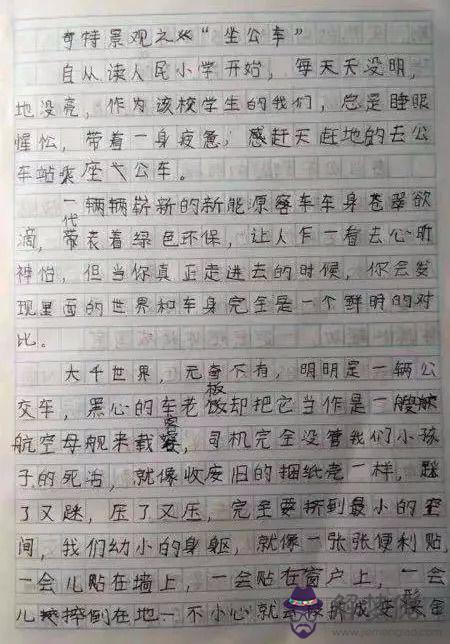 奇特景观之"坐公车"
自从读人民小学开始，每天天没明，
地没亮，作为该校学生的我们，总是睡眼
惺忪，带着一身疲惫，感赶天赶地的去公
车站乘座公车。
一辆辆崭新的新能原客车车身苍翠欲
滴，代表着绿色环保，让人乍一看去心旷
神怡，但当你真正走进去的时候，你会发
现里面的世界和车身完全是一个鲜明的对
比。
大千世界，无奇不有，明明是一辆公
交车，黑心的车老板却把它当作是一艘
航空母舰来载客，司机完全没管我们小孩
子的死活，就像收废旧的捆纸壳一样，踩
了又踩，压了又压，完全要挤到最小的空
间，我们幼小的身躯，就像一张张便利贴，
一会儿贴在墙上，一会贴在窗户上，一会
儿摔倒在地一不小心就会被挤成变